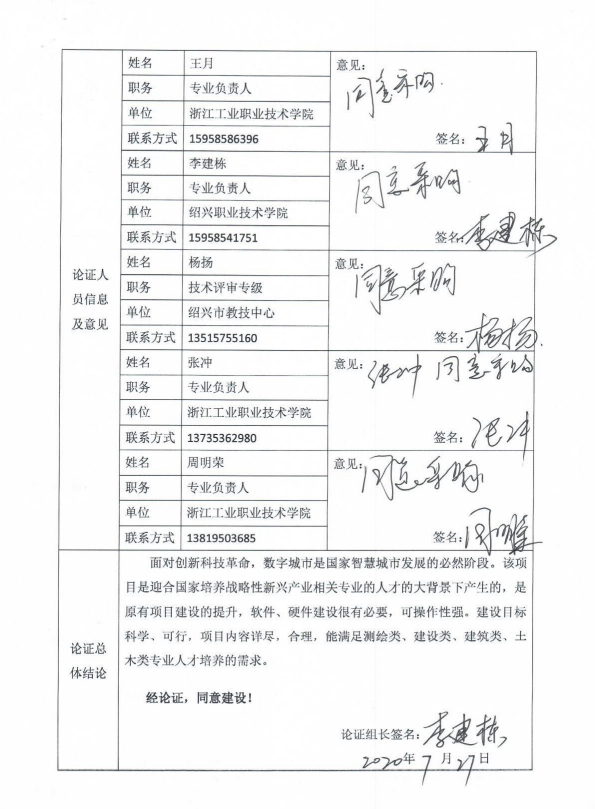 论证人
员信息
及意见
姓名 王月
职务 专业负责人
单位 浙江工业职业技术学院
联系方式 15958586396
意见:
同意采购.
签名: 王月
姓名 李建栋
职务 专业负责人
单位 绍兴职业技术学院
联系方式 15958541751
同意采购
签名: 李建栋
姓名 杨扬
职务 技术评审专级
单位 绍兴市教技中心
联系方式 13515755160
意见:
同意采购
签名: 杨扬.
姓名 张冲
职务 专业负责人
单位 浙江工业职业技术学院
联系方式 13735362980
意见: 张冲 同意采购
签名: 张冲
姓名 周明荣
职务 专业负责人
单位 浙江工业职业技术学院
联系方式 13819503685
意见:
同意采购
签名: 周明荣
论证总
体结论
面对创新科技革命，数字城市是国家智慧城市发展的必然阶段。该项
目是迎合国家培养战略性新兴产业相关专业的人才的大背景下产生的，是
原有项目建设的提升，软件、硬件建设很有必要，可操作性强。建设目标
科学、可行，项目内容详尽，合理，能满足测绘类、建设类、建筑类、土
木类专业人才培养的需求。
经论证，同意建设！
论证组长签名: 李建栋
2020年 7 月 27 日